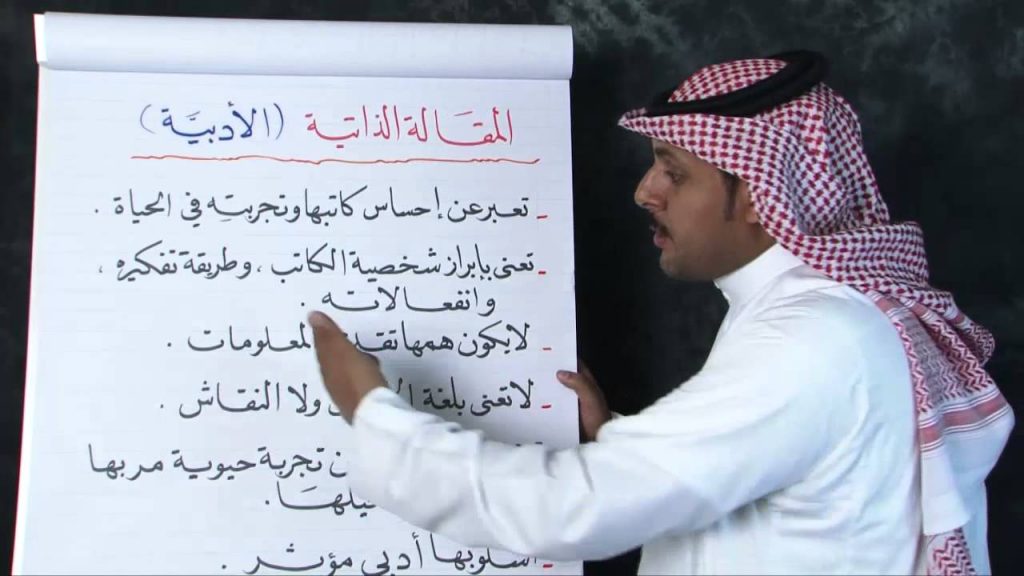 المقالة الذاتية (الأدبيَّة)
- تعبر عن إحساس كاتبها وتجربته في الحياة .
- تعنى بإبراز شخصية الكاتب ، وطريقة تفكيره ،
وانفعالاته .
- لا يكون همها المعلومات .
- لا تعنى بلغة ولا النقاش .
تجربة حيوية مر بها
- أسلوبها أدبي مؤثر .